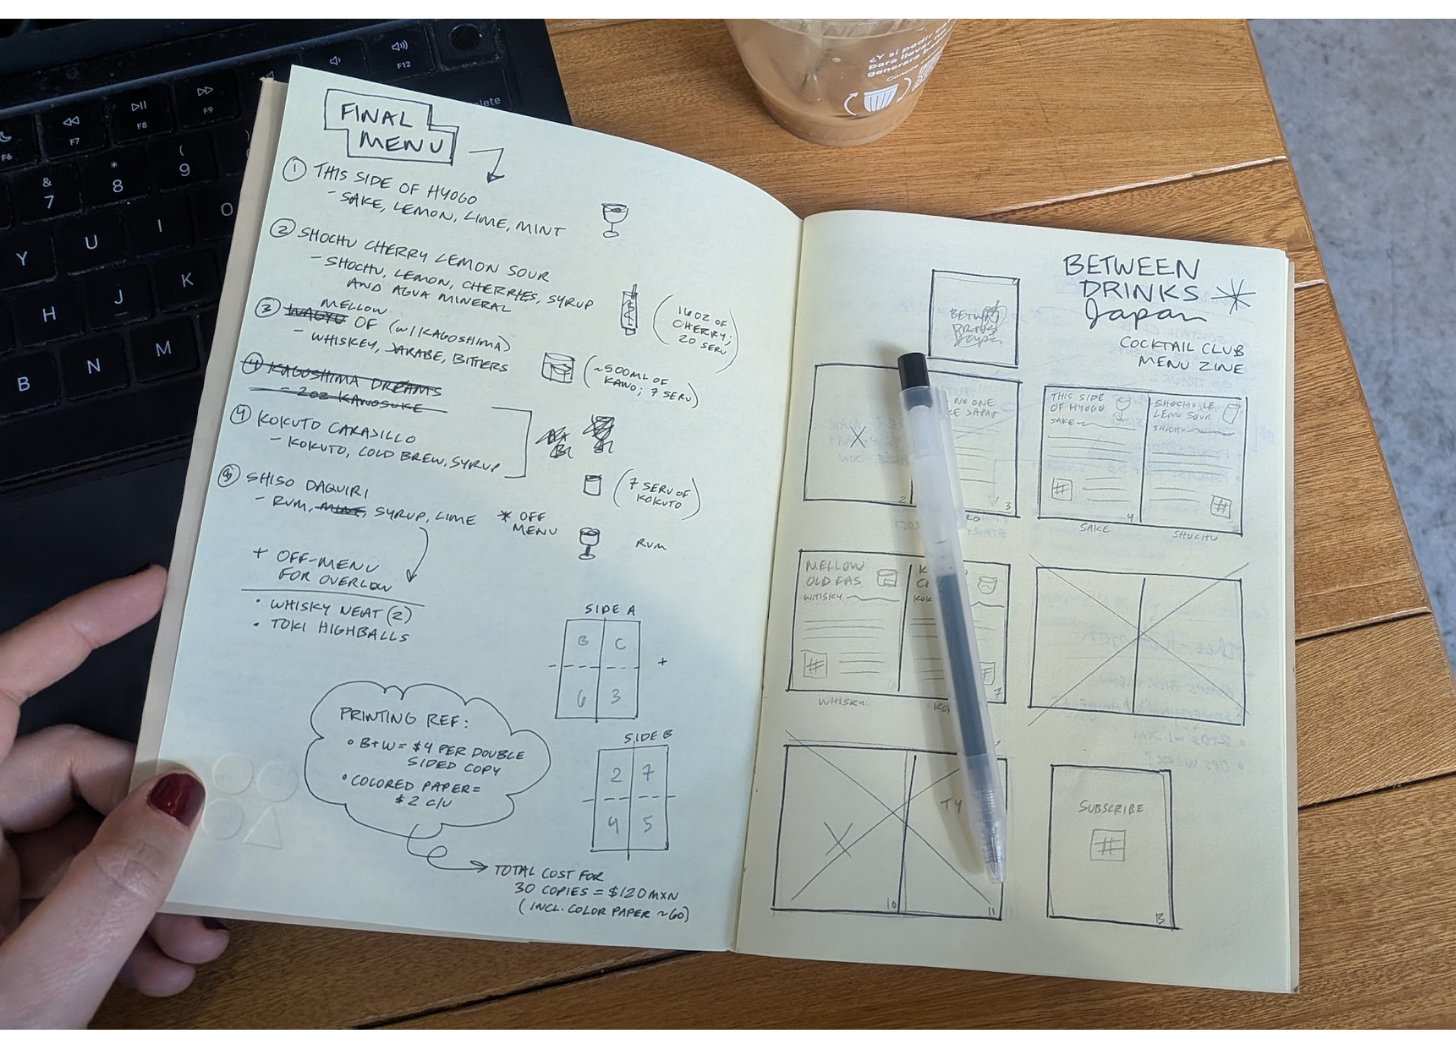 FINAL
MENU
① THIS SIDE OF HYOGO
- SAKE, LEMON, LIME, MINT
② SHOCHU CHERRY LEMON SOUR
- SHOCHU, LEMON, CHERRIES, SYRUP
AND AGUA MINERAL
(16OZ OF
CHERRY;
20 SERV)
MELLOW
③ WAGYU OF (W/KAGOSHIMA)
- WHISKEY, JARABE, BITTERS
(~500ML OF
KANO; 7 SERV)
④ KAGOSHIMA DREAMS
- 2OZ KANOSUKE
④ KOKUTO CARAJILLO
- KOKUTO, COLD BREW, SYRUP
(7 SERV OF
KOKUTO)
⑤ SHISO DAQUIRI
- RUM, MINT, SYRUP, LIME
* OFF
MENU
RUM
+ OFF-MENU
FOR OVERLOW
• WHISKY NEAT (2)
• TOKI HIGHBALLS
SIDE A
B C
6 3
+
SIDE B
2 7
4 5
PRINTING REF:
• B+W = $4 PER DOUBLE
SIDED COPY
• COLORED PAPER =
$2 C/U
TOTAL COST FOR
30 COPIES = $120 MXN
(INCL. COLOR PAPER ~60)
BETWEEN
DRINKS
Japan
COCKTAIL CLUB
MENU ZINE
X
2
NO ONE
3
THIS SIDE
OF HYOGO
SAKE
#
4
SAKE
LEMO SOUR
SHOCHU
#
5
SHOCHU
MELLOW
OLD FAS
WHISKY
#
WHISKY
7
X
TY
10
11
SUBSCRIBE
#
B
¿Y si pedir
para llevar
F6
F7
F8
F9
F12
& 7
* 8
( 9
Y U I O
H J K
B N M